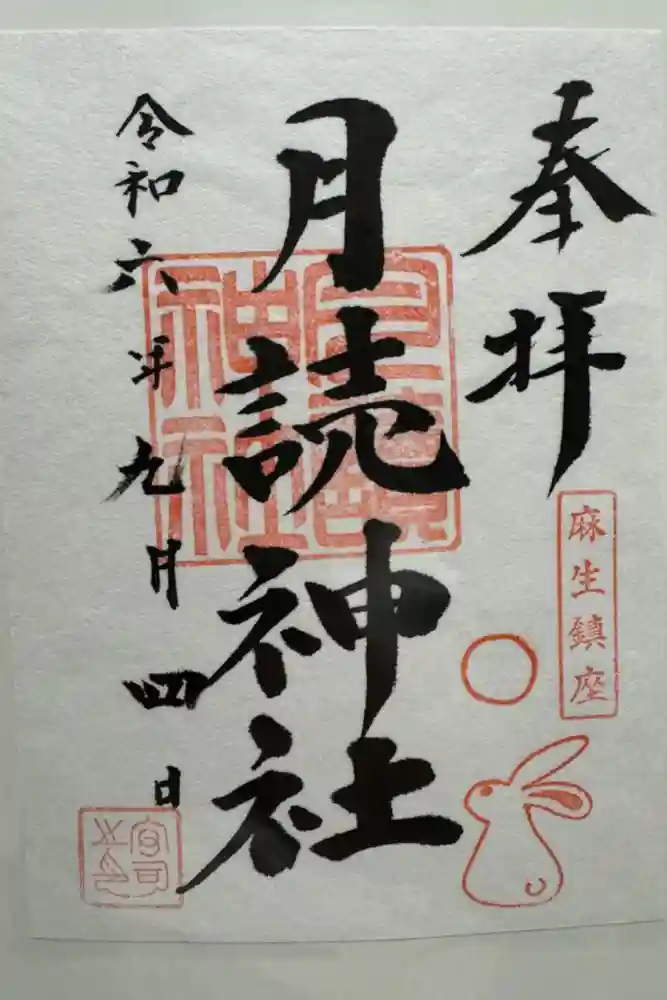 奉拝
麻生鎮座
月読神社
月讀神社
令和六年九月四日
宮司之印